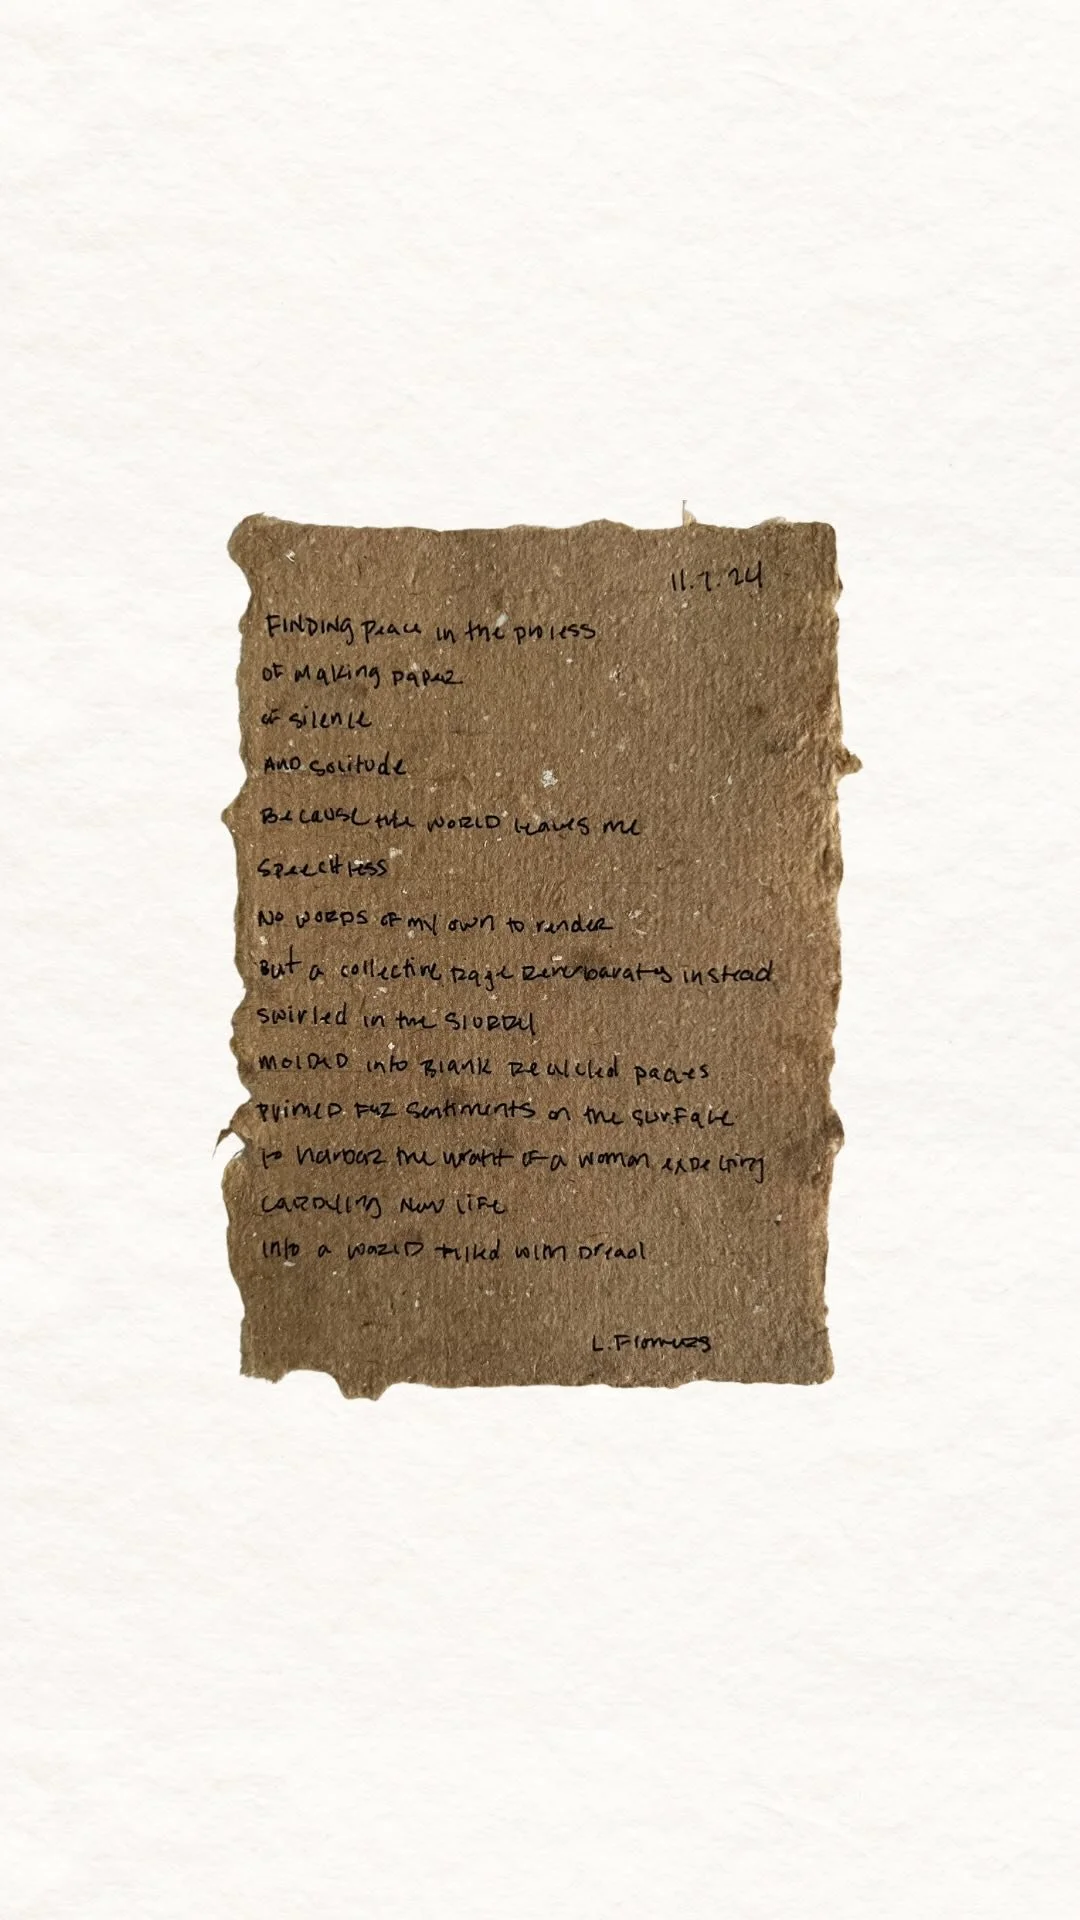 11.7.24
FINDING peace in the process
of making paper
of silence
AND solitude
Because the WORLD leaves me
speechless
No words of my own to render
But a collective rage reverbarates instead
swirled in the slurry
molded into blank recycled pages
primed for sentiments on the surface
to harbor the wrath of a woman expecting
carrying new life
into a world filled with dread